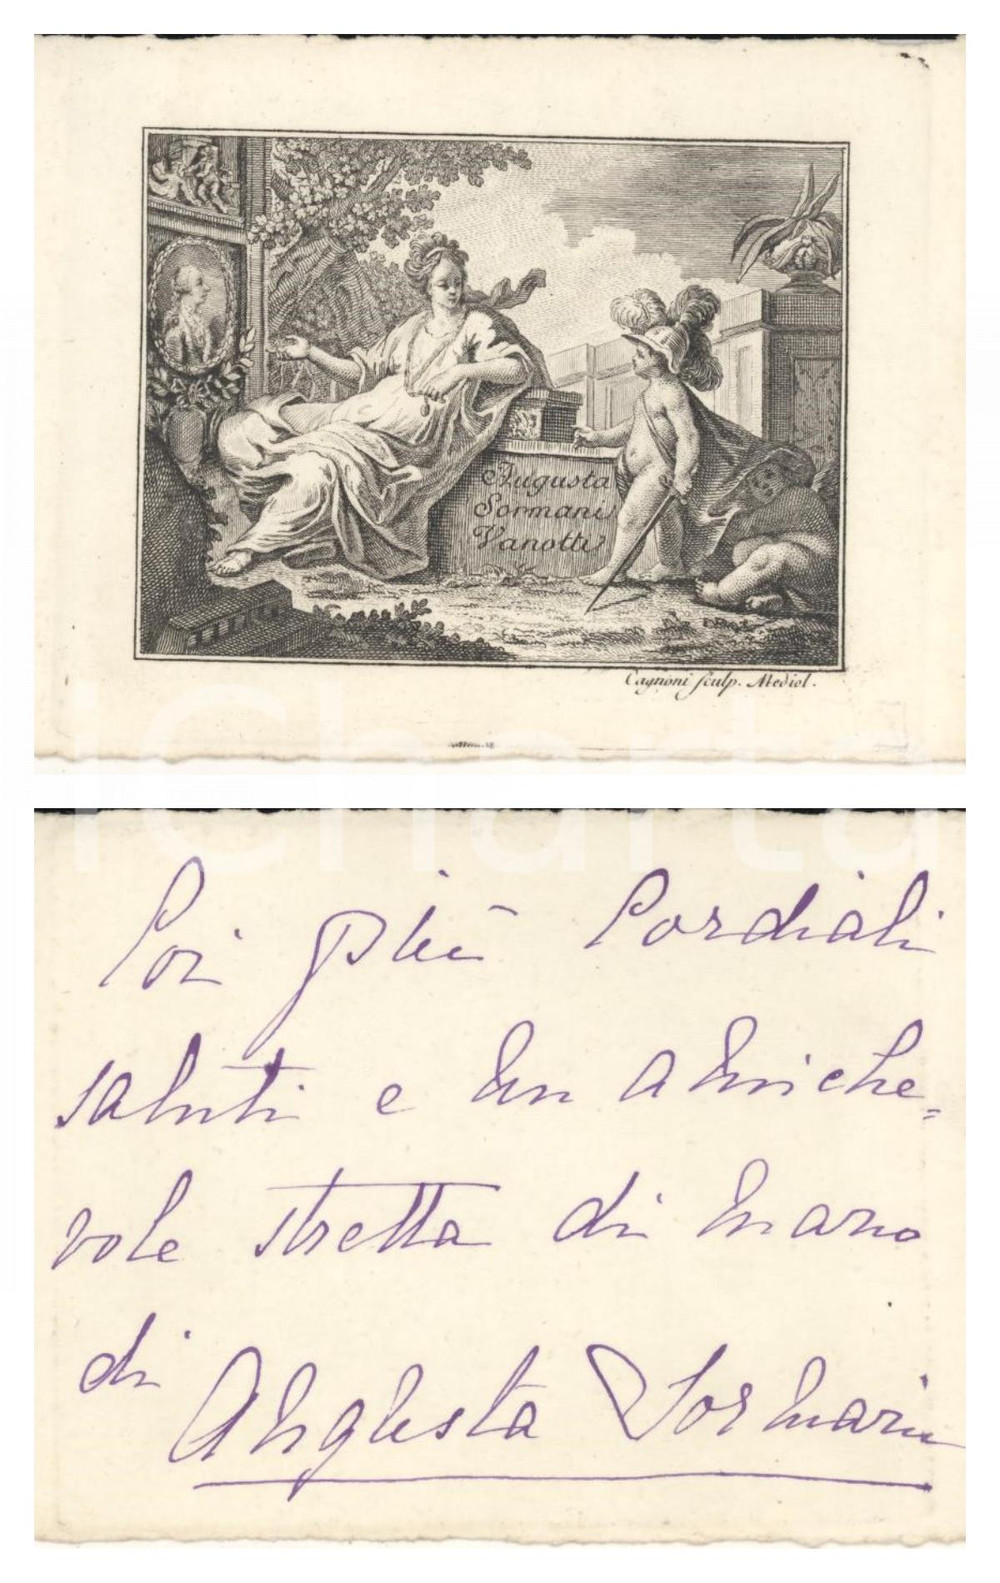 Augusta
Sormani
Vanotti
Cagnoni sculp. Mediol.
iCharta
Coi più Cordiali
saluti e un amiche=
vole stretta di mano
di Augusta Sormani